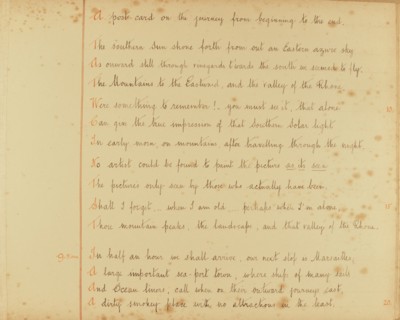 A post-card on the journey from beginning to the end.
The Southern Sun shone forth from out an Eastern azure sky
As onward still through vineyards towards the south we seemed to fly.
The Mountains to the Eastward, and the valley of the Rhone
Were something to remember! - you must see it, that alone
Can give the true impression of that Southern Solar light
In early morn, on mountains, after travelling through the night.
No artist could be found to paint the picture as it is
The pictures only seen by those who actually have been.
Shall I forget ... when I am old ... perhaps when I'm alone,
Those mountain peaks, the landscape, and that valley of the Rhone.
In half an hour we shall arrive, our next stop is Marseilles,
A large important sea-port town, where ships of many
And Ocean liners, call when on their outward journeys east,
A dirty smokey place with no attractions in the least.